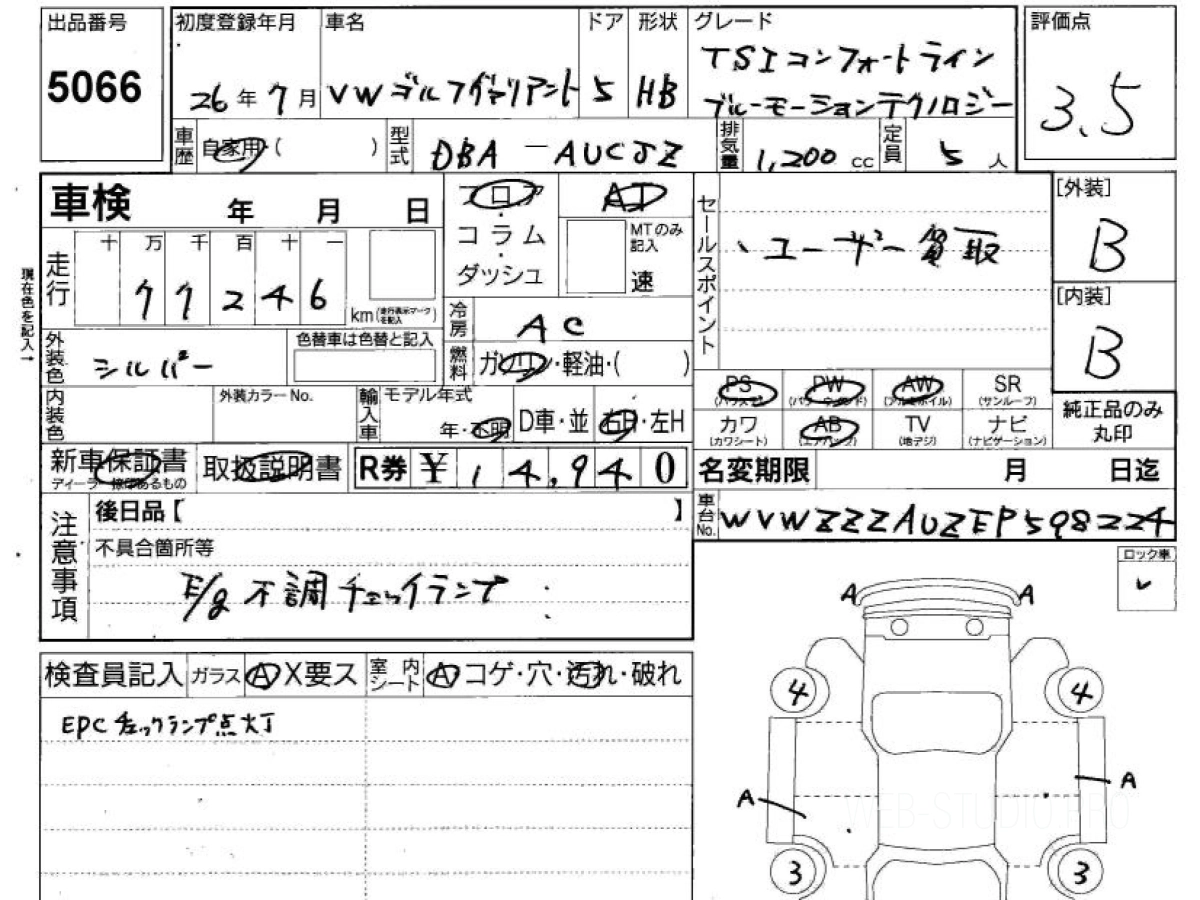 出品番号
5066
初度登録年月
26年7月
車名
VWゴルフヴァリアント
ドア
5
形状
HB
グレード
TSIコンフォートライン
ブルーモーションテクノロジー
評価点
3.5
車歴
自家用・( )
型式
DBA-AUCJZ
排気量
1,200 cc
定員
5人
車検 年 月 日
フロア
・
コラム
・
ダッシュ
AT
MTのみ記入
速
セールスポイント
、ユーザー買取
[外装]
B
[内装]
B
現在色を記入→
走行
十 万 千 百 十 一
77246
km(走行表示マークを記入)
冷房
AC
外装色
シルバー
色替車は色替と記入
燃料
ガソリン・軽油・( )
内装色
外装カラーNo.
輸入車
モデル年式
年・不明
D車・並
右H・左H
PS
(パワステ)
PW
(パワーウィンド)
AW
(アルミホイル)
SR
(サンルーフ)
カワ
(カワシート)
AB
(エアバック)
TV
(地デジ)
ナビ
(ナビゲーション)
純正品のみ
丸印
新車保証書
取扱説明書
R券 ¥14,940
名変期限 月 日迄
注意事項
後日品【 】
不具合箇所等
E/g不調チェックランプ
車台No.
WVWZZZAUZEP598224
ロック車
✓
検査員記入
ガラス
A X要ス
室内シート
A コゲ・穴・汚れ・破れ
EPCチェックランプ点灯
A A
4 4
A A
3 3
WEB-STUDIO PRO